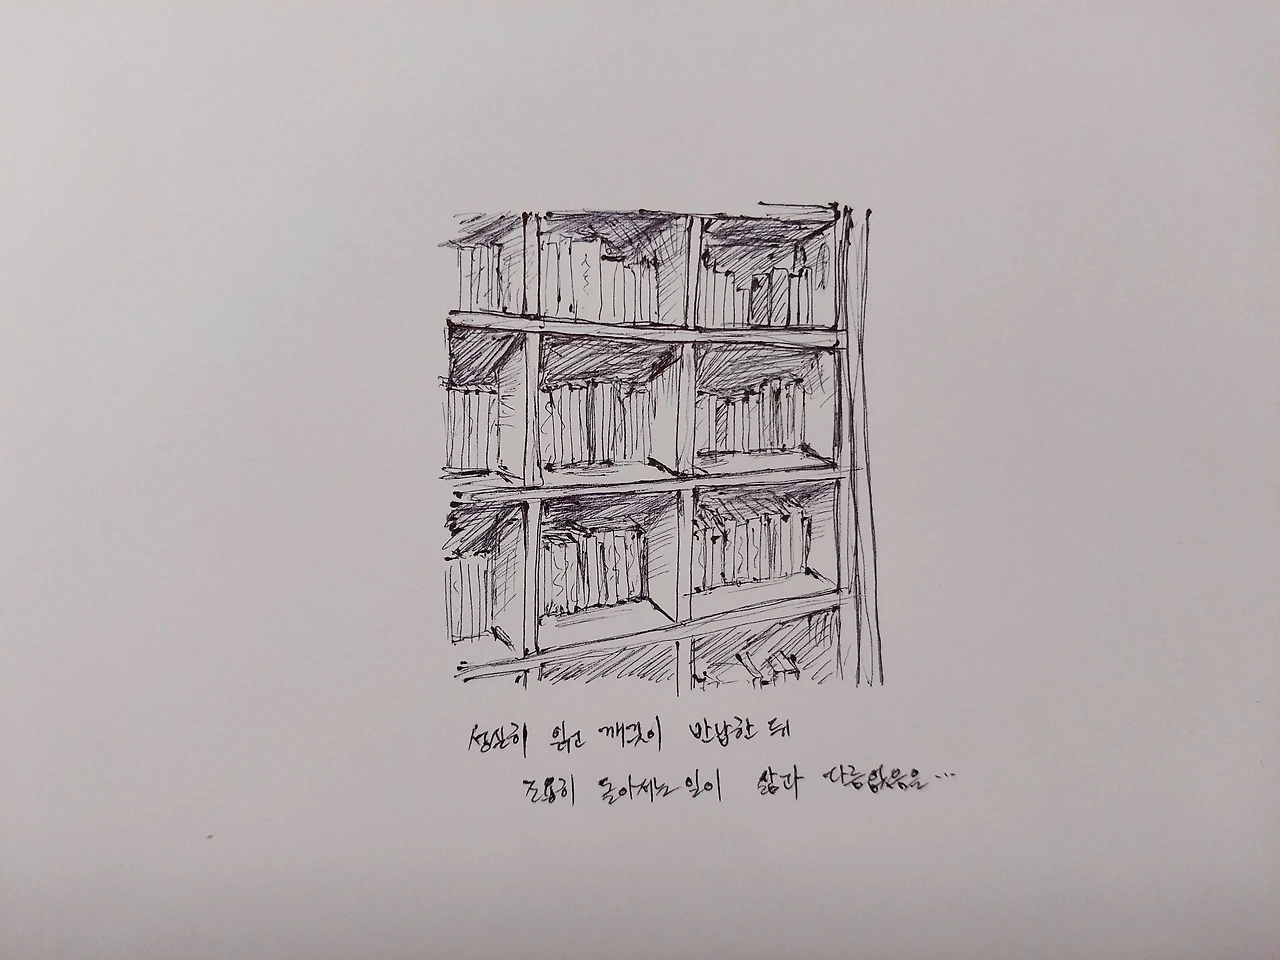 성실히 읽고 깨끗이 반납한 뒤
조용히 돌아서는 일이 삶과 다름없음을…